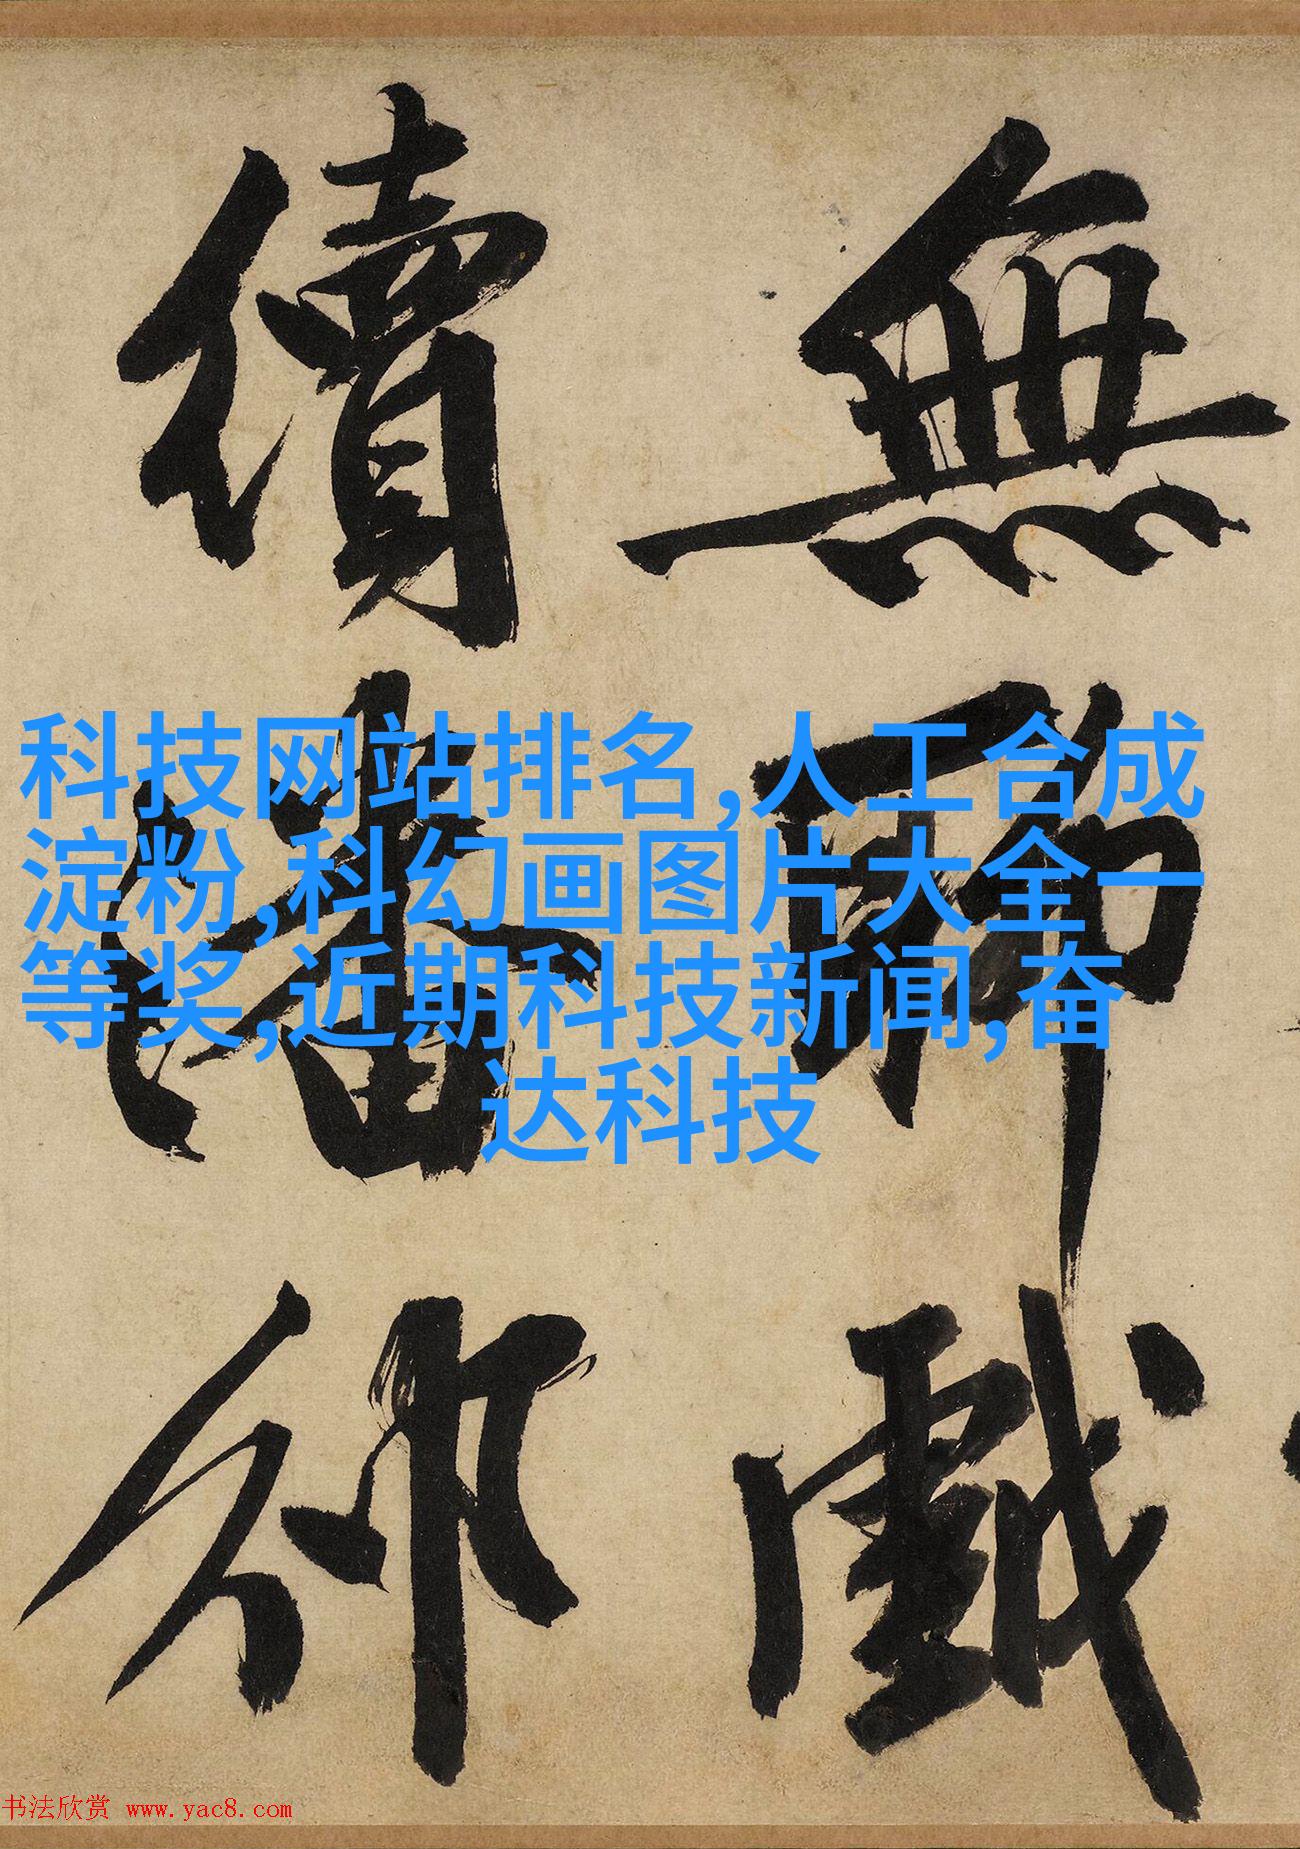 無聊戲
續潘邠
科技网站排名,人工合成
淀粉,科幻画图片大全一
等奖,近期科技新闻,奋
达科技
书法欣赏 www.yac8.com